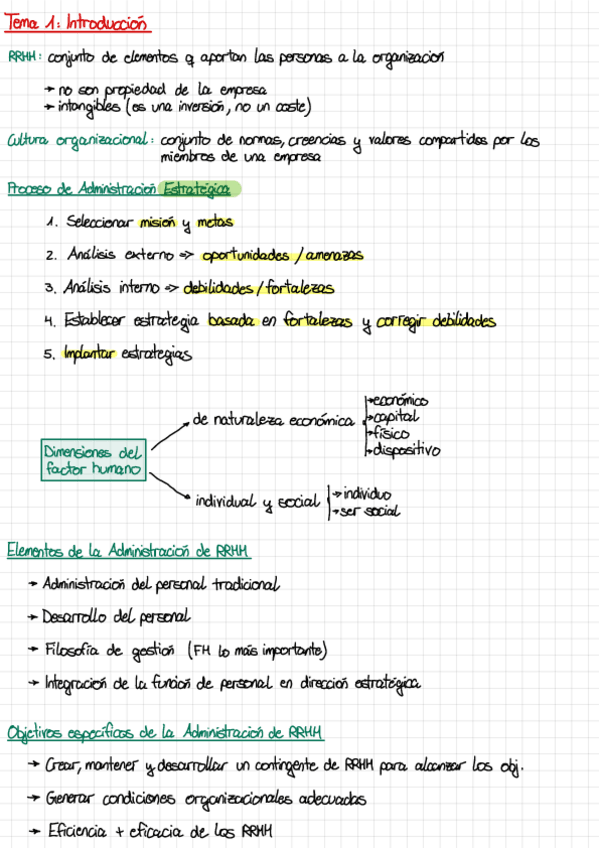 Tema 1: Introducción
RRHH: conjunto de elementos q aportan las personas a la organización
→ no son propiedad de la empresa
→ intangibles (es una inversión, no un coste)
Cultura organizacional: conjunto de normas, creencias y valores compartidos por los
miembros de una empresa
Proceso de Administración Estratégica
1. Seleccionar misión y metas
2. Análisis externo => oportunidades / amenazas
3. Análisis interno => debilidades / fortalezas
4. Establecer estrategia basada en fortalezas y corregir debilidades
5. Implantar estrategias
Dimensiones del
factor humano
de naturaleza económica
→ económico
→ capital
→ físico
→ dispositivo
individual y social
→ individuo
→ ser social
Elementos de la Administración de RRHH
→ Administración del personal tradicional
→ Desarrollo del personal
→ Filosofía de gestión (FH lo más importante)
→ Integración de la función de personal en dirección estratégica
Objetivos específicos de la Administración de RRHH
→ Crear, mantener y desarrollar un contingente de RRHH para alcanzar los obj.
→ Generar condiciones organizacionales adecuadas
→ Eficiencia + eficacia de los RRHH